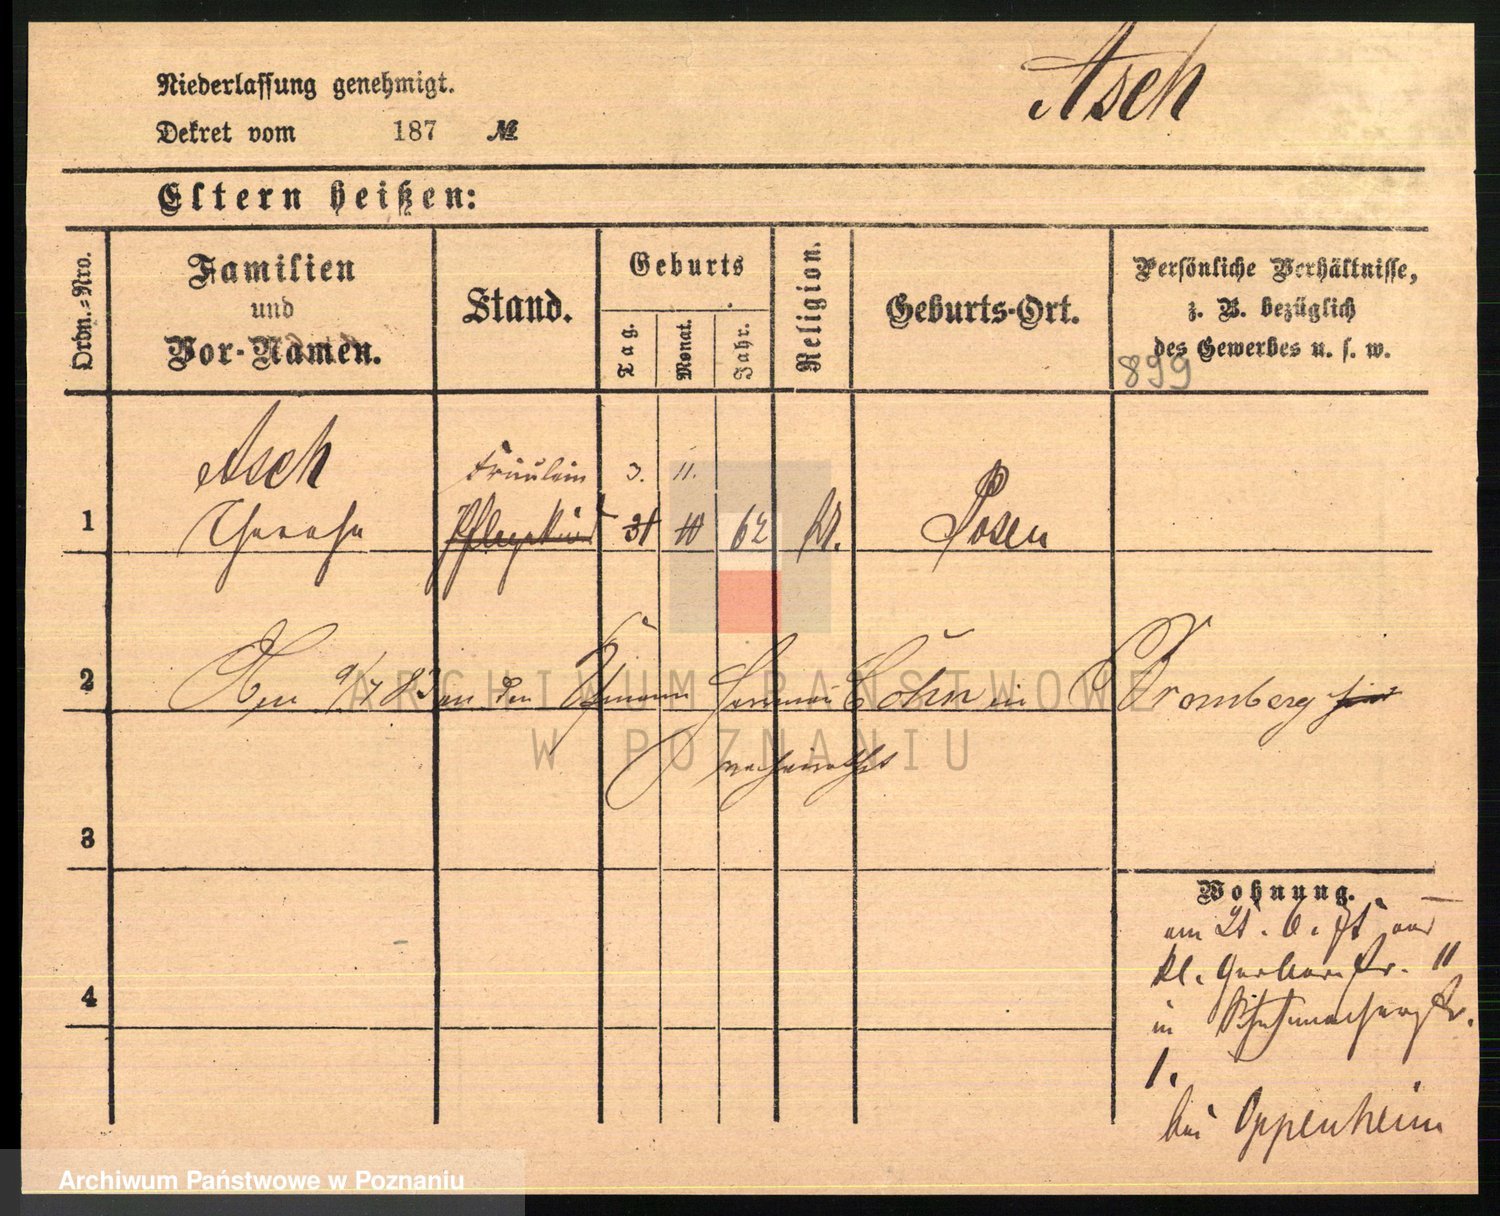 Asch
Niederlassung genehmigt.
Dekret vom 187 №
Eltern heißen:
Ordn.=Nro.
Familien
und
Vor-Namen.
Stand.
Geburts
Tag.
Monat.
Jahr.
Religion.
Geburts-Ort.
Persönliche Verhältnisse,
z. B. bezüglich
des Gewerbes u. s. w.
899
Asch Fräulein 3. 11.
1 Therese Pflegekind 31 10 62 M. Posen
2 9/7 83 an den Herman Cohn in Bromberg
verheirathet
3
4
Wohnung.
am 21. 6. 71 aus
kl. Gerberstr. 11
in Schuhmacherstr.
1.
bei Oppenheim
ARCHIWUM PAŃSTWOWE
W POZNANIU
Archiwum Państwowe w Poznaniu